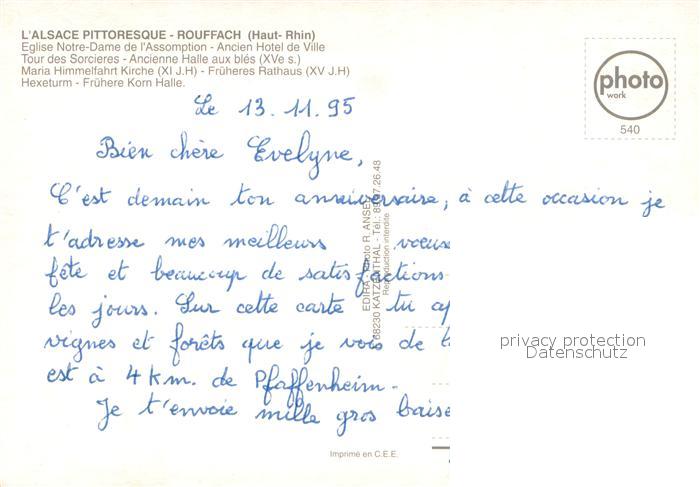 L'ALSACE PITTORESQUE - ROUFFACH (Haut- Rhin)
Eglise Notre-Dame de l'Assomption - Ancien Hotel de Ville
Tour des Sorcieres - Ancienne Halle aux blés (XVe s.)
Maria Himmelfahrt Kirche (XI J.H) - Früheres Rathaus (XV J.H)
Hexeturm - Frühere Korn Halle.
photo
work
540
Le 13.11.95
Bien chère Evelyne,
C'est demain ton anniversaire, à cette occasion je
t'adresse mes meilleurs voeux
fête et beaucoup de satisfactions
les jours. Sur cette carte tu
vignes et forêts que je vois de
est à 4 km. de Pfaffenheim.
Je t'envoie mille gros
EDIRA - Photo R. ANSEL
68230 KATZENTHAL - Tél.: 89.47.26.48
Reproduction interdite
privacy protection
Datenschutz
Imprimé en C.E.E.